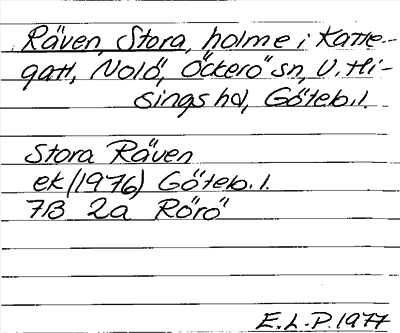 Räven, Stora, holme i Katte-
gatt, Nolö, Öckerö sn, V. Hi-
sings hd, Göteb.l.
Stora Räven
ek (1976) Göteb.l.
7B 2a Rörö
E.L-P. 1977